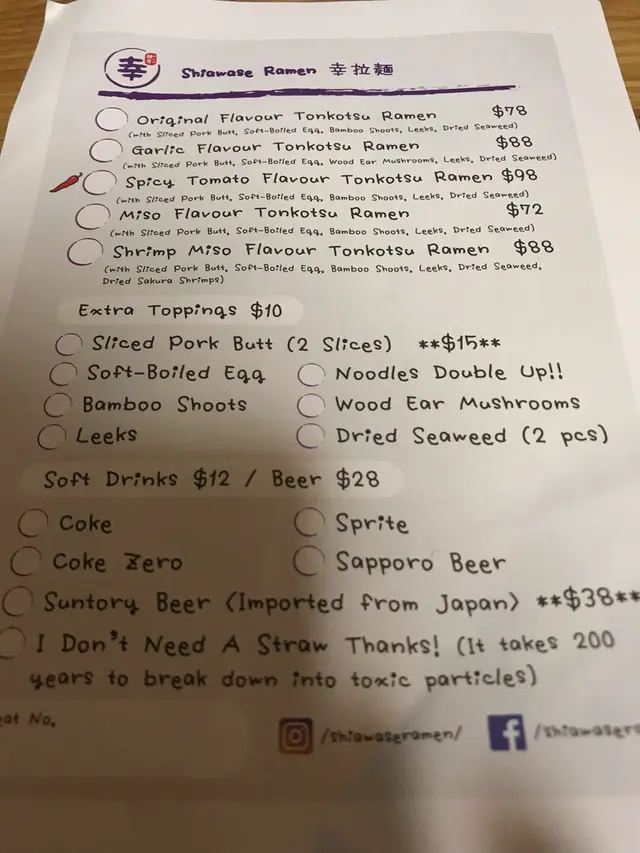 幸
Shiawase Ramen 幸拉麵
Original Flavour Tonkotsu Ramen $78
(with Sliced Pork Butt, Soft-Boiled Egg, Bamboo Shoots, Leeks, Dried Seaweed)
Garlic Flavour Tonkotsu Ramen $88
(with Sliced Pork Butt, Soft-Boiled Egg, Wood Ear Mushrooms, Leeks, Dried Seaweed)
Spicy Tomato Flavour Tonkotsu Ramen $98
(with Sliced Pork Butt, Soft-Boiled Egg, Bamboo Shoots, Leeks, Dried Seaweed)
Miso Flavour Tonkotsu Ramen $72
(with Sliced Pork Butt, Soft-Boiled Egg, Bamboo Shoots, Leeks, Dried Seaweed)
Shrimp Miso Flavour Tonkotsu Ramen $88
(with Sliced Pork Butt, Soft-Boiled Egg, Bamboo Shoots, Leeks, Dried Seaweed,
Dried Sakura Shrimps)
Extra Toppings $10
Sliced Pork Butt (2 Slices) **$15**
Soft-Boiled Egg Noodles Double Up!!
Bamboo Shoots Wood Ear Mushrooms
Leeks Dried Seaweed (2 pcs)
Soft Drinks $12 / Beer $28
Coke Sprite
Coke Zero Sapporo Beer
Suntory Beer (Imported from Japan) **$38**
I Don't Need A Straw Thanks! (It takes 200
years to break down into toxic particles)
eat No.
/shiawaseramen/ /shiawasera